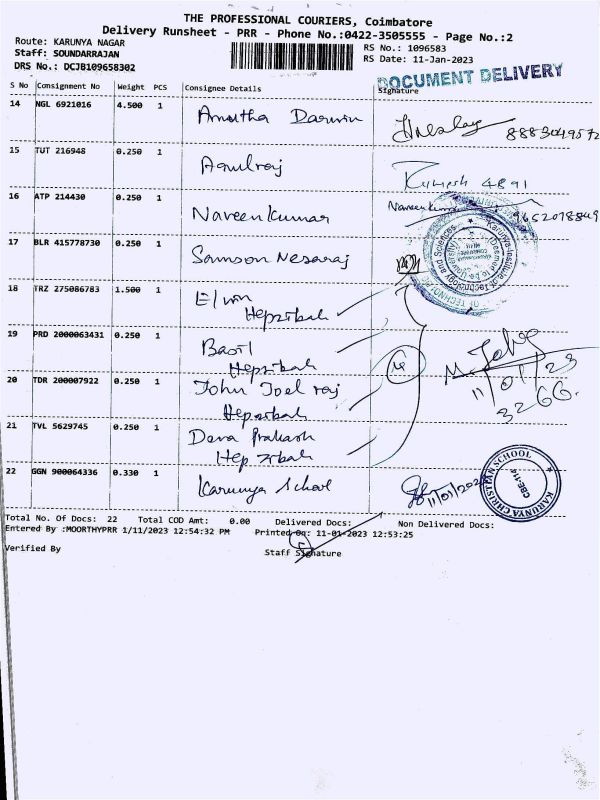 THE PROFESSIONAL COURIERS, Coimbatore
Delivery Runsheet - PRR - Phone No.:0422-3505555 - Page No.:2
Route: KARUNYA NAGAR
RS No.: 1096583
Staff: SOUNDARRAJAN
RS Date: 11-Jan-2023
DRS No.: DCJB109658302
DOCUMENT DELIVERY
S No Consignment No Weight PCS Consignee Details Signature
14 NGL 6921016 4.500 1 Amutha Darwin 8883049572
15 TUT 216948 0.250 1 4891
16 ATP 214430 0.250 1 Naveen Kumar Naveenkumar 9652018849
17 BLR 415778730 0.250 1 Samson Nesaraj
Karunya Institute of Technology and Sciences
18 TRZ 275086783 1.500 1 Elwin
Hepzibah
19 PRD 2000063431 0.250 1 Basil
Hepzibah
11/01/23
20 TDR 200007922 0.250 1 John Joel raj
Hepzibah
3266.
21 TVL 5629745 0.250 1 Dana Prakash
Hepzibah
22 GGN 900064336 0.330 1 Karunya School 11/01/202
KARUNYA CHRISTIAN SCHOOL
CBE-114
Total No. Of Docs: 22 Total COD Amt: 0.00 Delivered Docs: Non Delivered Docs:
Entered By :MOORTHYPRR 1/11/2023 12:54:32 PM Printed On: 11-01-2023 12:53:25
Verified By Staff Signature